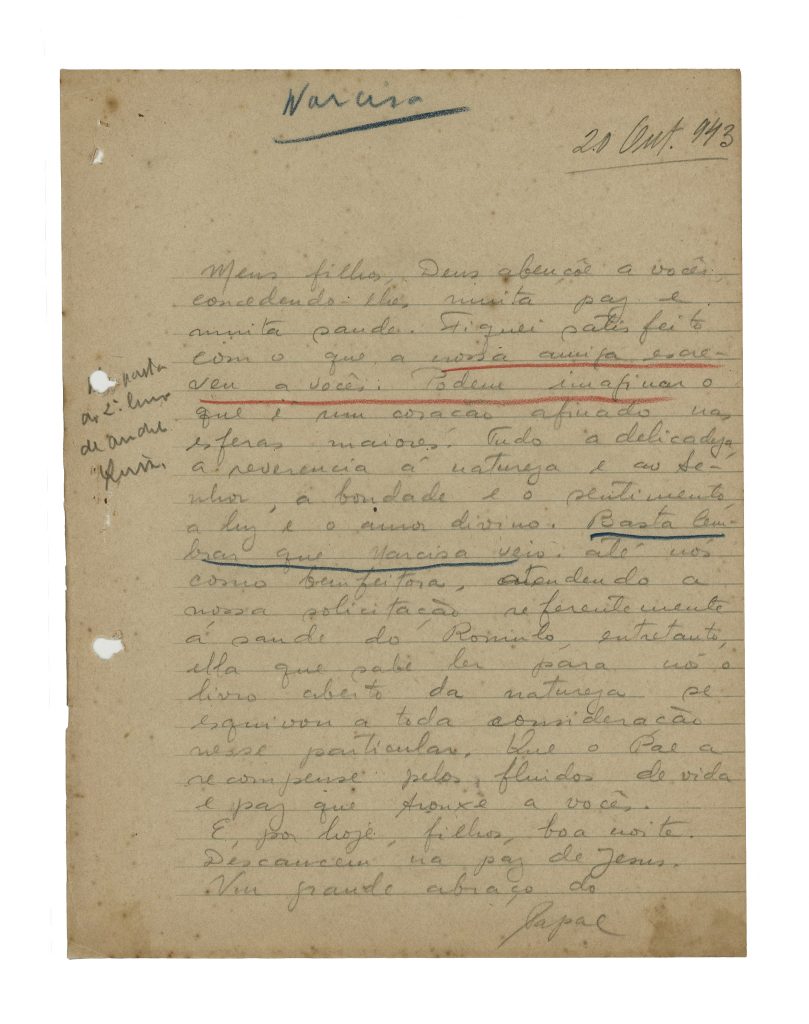 Narcisa
20 Out. 943
Meus filhos, Deus abençôe a vocês,
concedendo-lhes muita paz e
muita saude. Fiquei satisfeito
com o que a nossa amiga escre-
veu a vocês. Podem imaginar o
que é um coração afinado nas
esferas maiores. Tudo a delicadeza,
a reverencia á natureza e ao Se-
nhor, a bondade e o sentimento,
a luz e o amor divino. Basta lem-
brar que Narcisa veio até nós
como bemfeitora, atendendo a
nossa solicitação referentemente
á saude do Romulo, entretanto,
ella que sabe ler para nós o
livro aberto da natureza se
esquivou a toda consideração
nesse particular. Que o Pae a
recompense pelos fluidos de vida
e paz que trouxe a vocês.
E, por hoje, filhos, boa noite.
Descancem na paz de Jesus.
Um grande abraço do
Papae
pasta
do 2º livro
de André
Luiz.